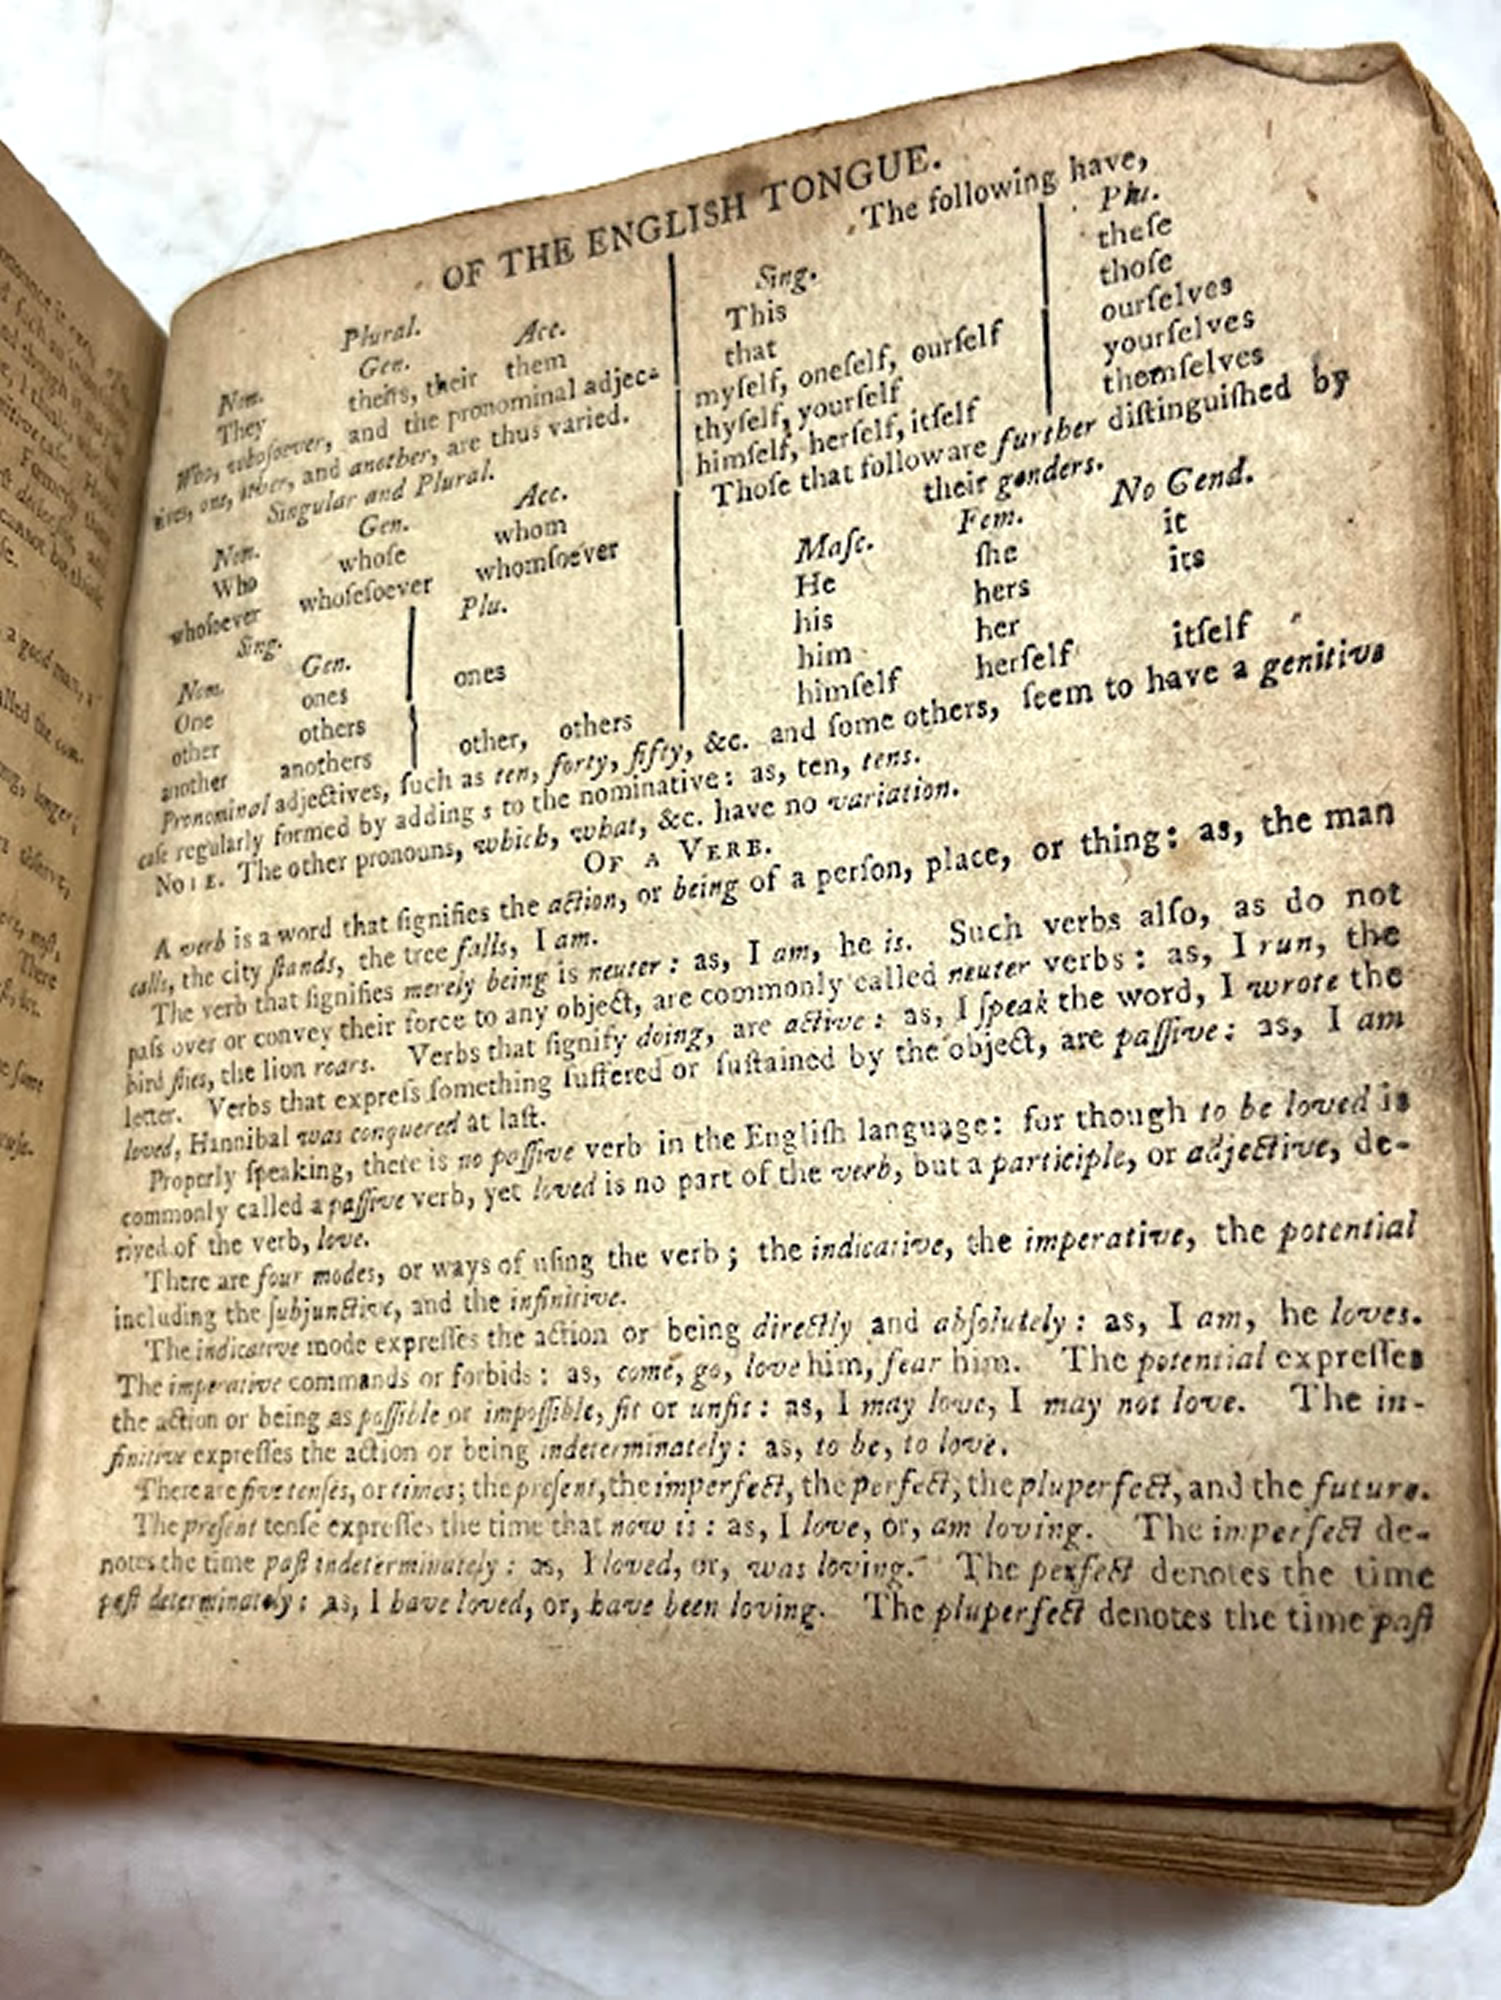 OF THE ENGLISH TONGUE.
Plural.
Nom. Gen. Acc.
They theirs, their them
Who, whosoever, and the pronominal adjec-
tives, one, other, and another, are thus varied.
Singular and Plural.
Nom. Gen. Acc.
Who whose whom
whosoever whosesoever whomsoever
Sing. Plu.
Nom. Gen.
One ones ones
other others other, others
another anothers
The following have,
Sing. Plu.
This theſe
that thoſe
myſelf, oneſelf, ourſelf ourſelves
thyſelf, yourſelf yourſelves
himſelf, herſelf, itſelf themſelves
Thoſe that follow are further diſtinguiſhed by
their genders.
Maſc. Fem. No Gend.
He ſhe it
his hers its
him her
himſelf herſelf itſelf
Pronominal adjectives, ſuch as ten, forty, fifty, &c. and ſome others, ſeem to have a genitive
caſe regularly formed by adding s to the nominative: as, ten, tens.
NOTE. The other pronouns, which, what, &c. have no variation.
OF A VERB.
A verb is a word that ſignifies the action, or being of a perſon, place, or thing: as, the man
calls, the city ſtands, the tree falls, I am.
The verb that ſignifies merely being is neuter: as, I am, he is. Such verbs alſo, as do not
paſs over or convey their force to any object, are commonly called neuter verbs: as, I run, the
bird flies, the lion roars. Verbs that ſignify doing, are active: as, I ſpeak the word, I wrote the
letter. Verbs that expreſs ſomething ſuffered or ſuſtained by the object, are paſſive: as, I am
loved, Hannibal was conquered at laſt.
Properly ſpeaking, there is no paſſive verb in the Engliſh language: for though to be loved is
commonly called a paſſive verb, yet loved is no part of the verb, but a participle, or adjective, de-
rived of the verb, love.
There are four modes, or ways of uſing the verb; the indicative, the imperative, the potential
including the ſubjunctive, and the infinitive.
The indicative mode expreſſes the action or being directly and abſolutely: as, I am, he loves.
The imperative commands or forbids: as, come, go, love him, fear him. The potential expreſſes
the action or being as poſſible or impoſſible, fit or unfit: as, I may love, I may not love. The in-
finitive expreſſes the action or being indeterminately: as, to be, to love.
There are five tenſes, or times; the preſent, the imperfect, the perfect, the pluperfect, and the future.
The preſent tenſe expreſſes the time that now is: as, I love, or, am loving. The imperfect de-
notes the time paſt indeterminately: as, I loved, or, was loving. The perfect denotes the time
paſt determinately: as, I have loved, or, have been loving. The pluperfect denotes the time paſt